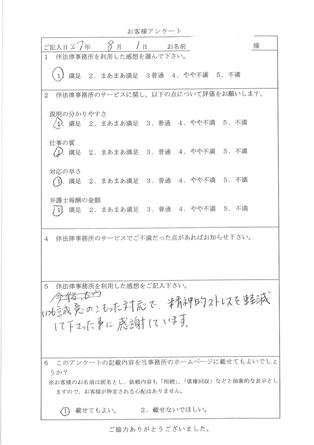 お客様アンケート
ご記入日 27年 8月 1日 お名前 様
1 伴法律事務所を利用した感想を選んで下さい。
1. 満足 2. まあまあ満足 3 普通 4. やや不満 5. 不満
2 伴法律事務所のサービスに関し、以下の点について評価をお願いします。
説明の分かりやすさ
1. 満足 2. まあまあ満足 3. 普通 4. やや不満 5. 不満
仕事の質
1. 満足 2. まあまあ満足 3. 普通 4. やや不満 5. 不満
対応の早さ
1. 満足 2. まあまあ満足 3. 普通 4. やや不満 5. 不満
弁護士報酬の金額
1. 満足 2. まあまあ満足 3. 普通 4. やや不満 5. 不満
4 伴法律事務所のサービスでご不満だった点があればお知らせ下さい。
5 伴法律事務所を利用した感想をご記入下さい。
いつも誠意のこもった対応で、精神的ストレスを軽減
して下さった事に感謝しています。
6 このアンケートの記載内容を当事務所のホームページに載せてもよいでしょ
うか?
※お客様のお名前は匿名とし、依頼内容も「相続」、「債権回収」などと抽象的な表示とし
ますので、お客様が特定される心配はありません。
1. 載せてもよい。 2. 載せないでほしい。
ご協力ありがとうございました。